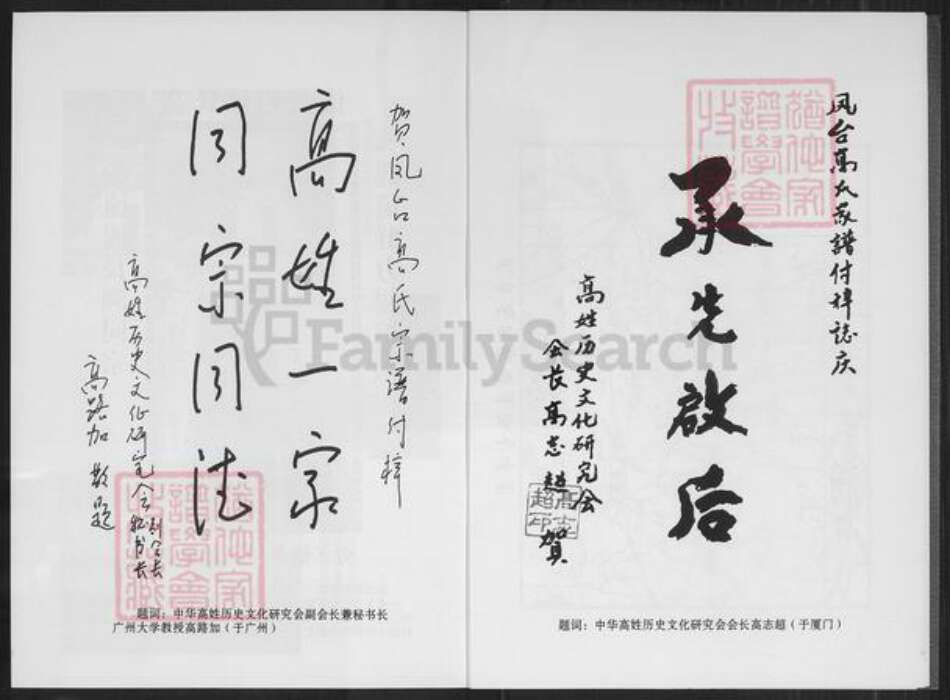 凤台高氏家谱付梓誌庆
承先啟后
高姓历史文化研究会
会长高志超 贺
题词：中华高姓历史文化研究会会长高志超（于厦门）
贺凤台高氏宗谱付梓
高姓一宗
同宗同德
高姓历史文化研究会
副会长
秘书长
高路加 敬题
题词：中华高姓历史文化研究会副会长兼秘书长
广州大学教授高路加（于广州）
FamilySearch